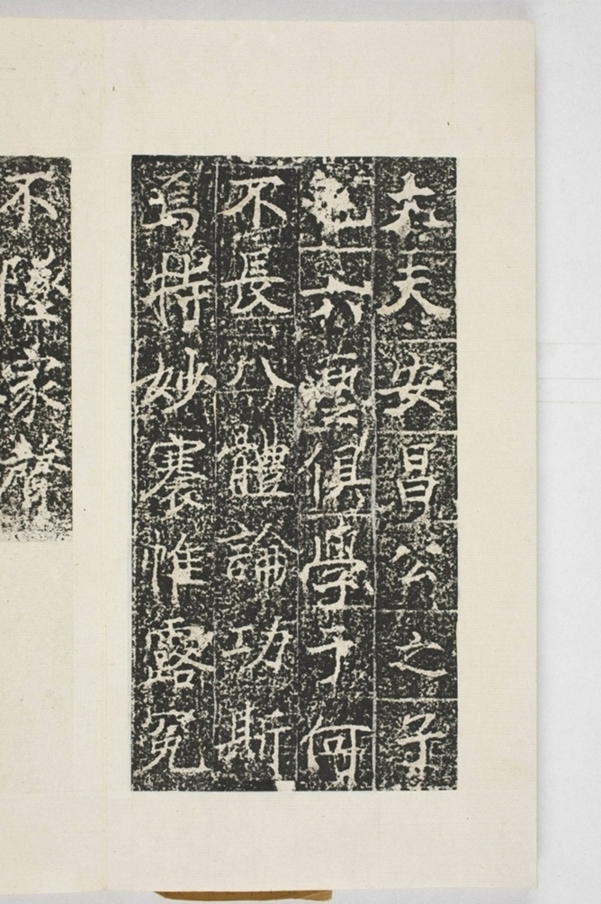 大夫安昌公之子
也六藝俱學于何
不長八體論功斯
焉特妙褰帷露冕
不墜家聲